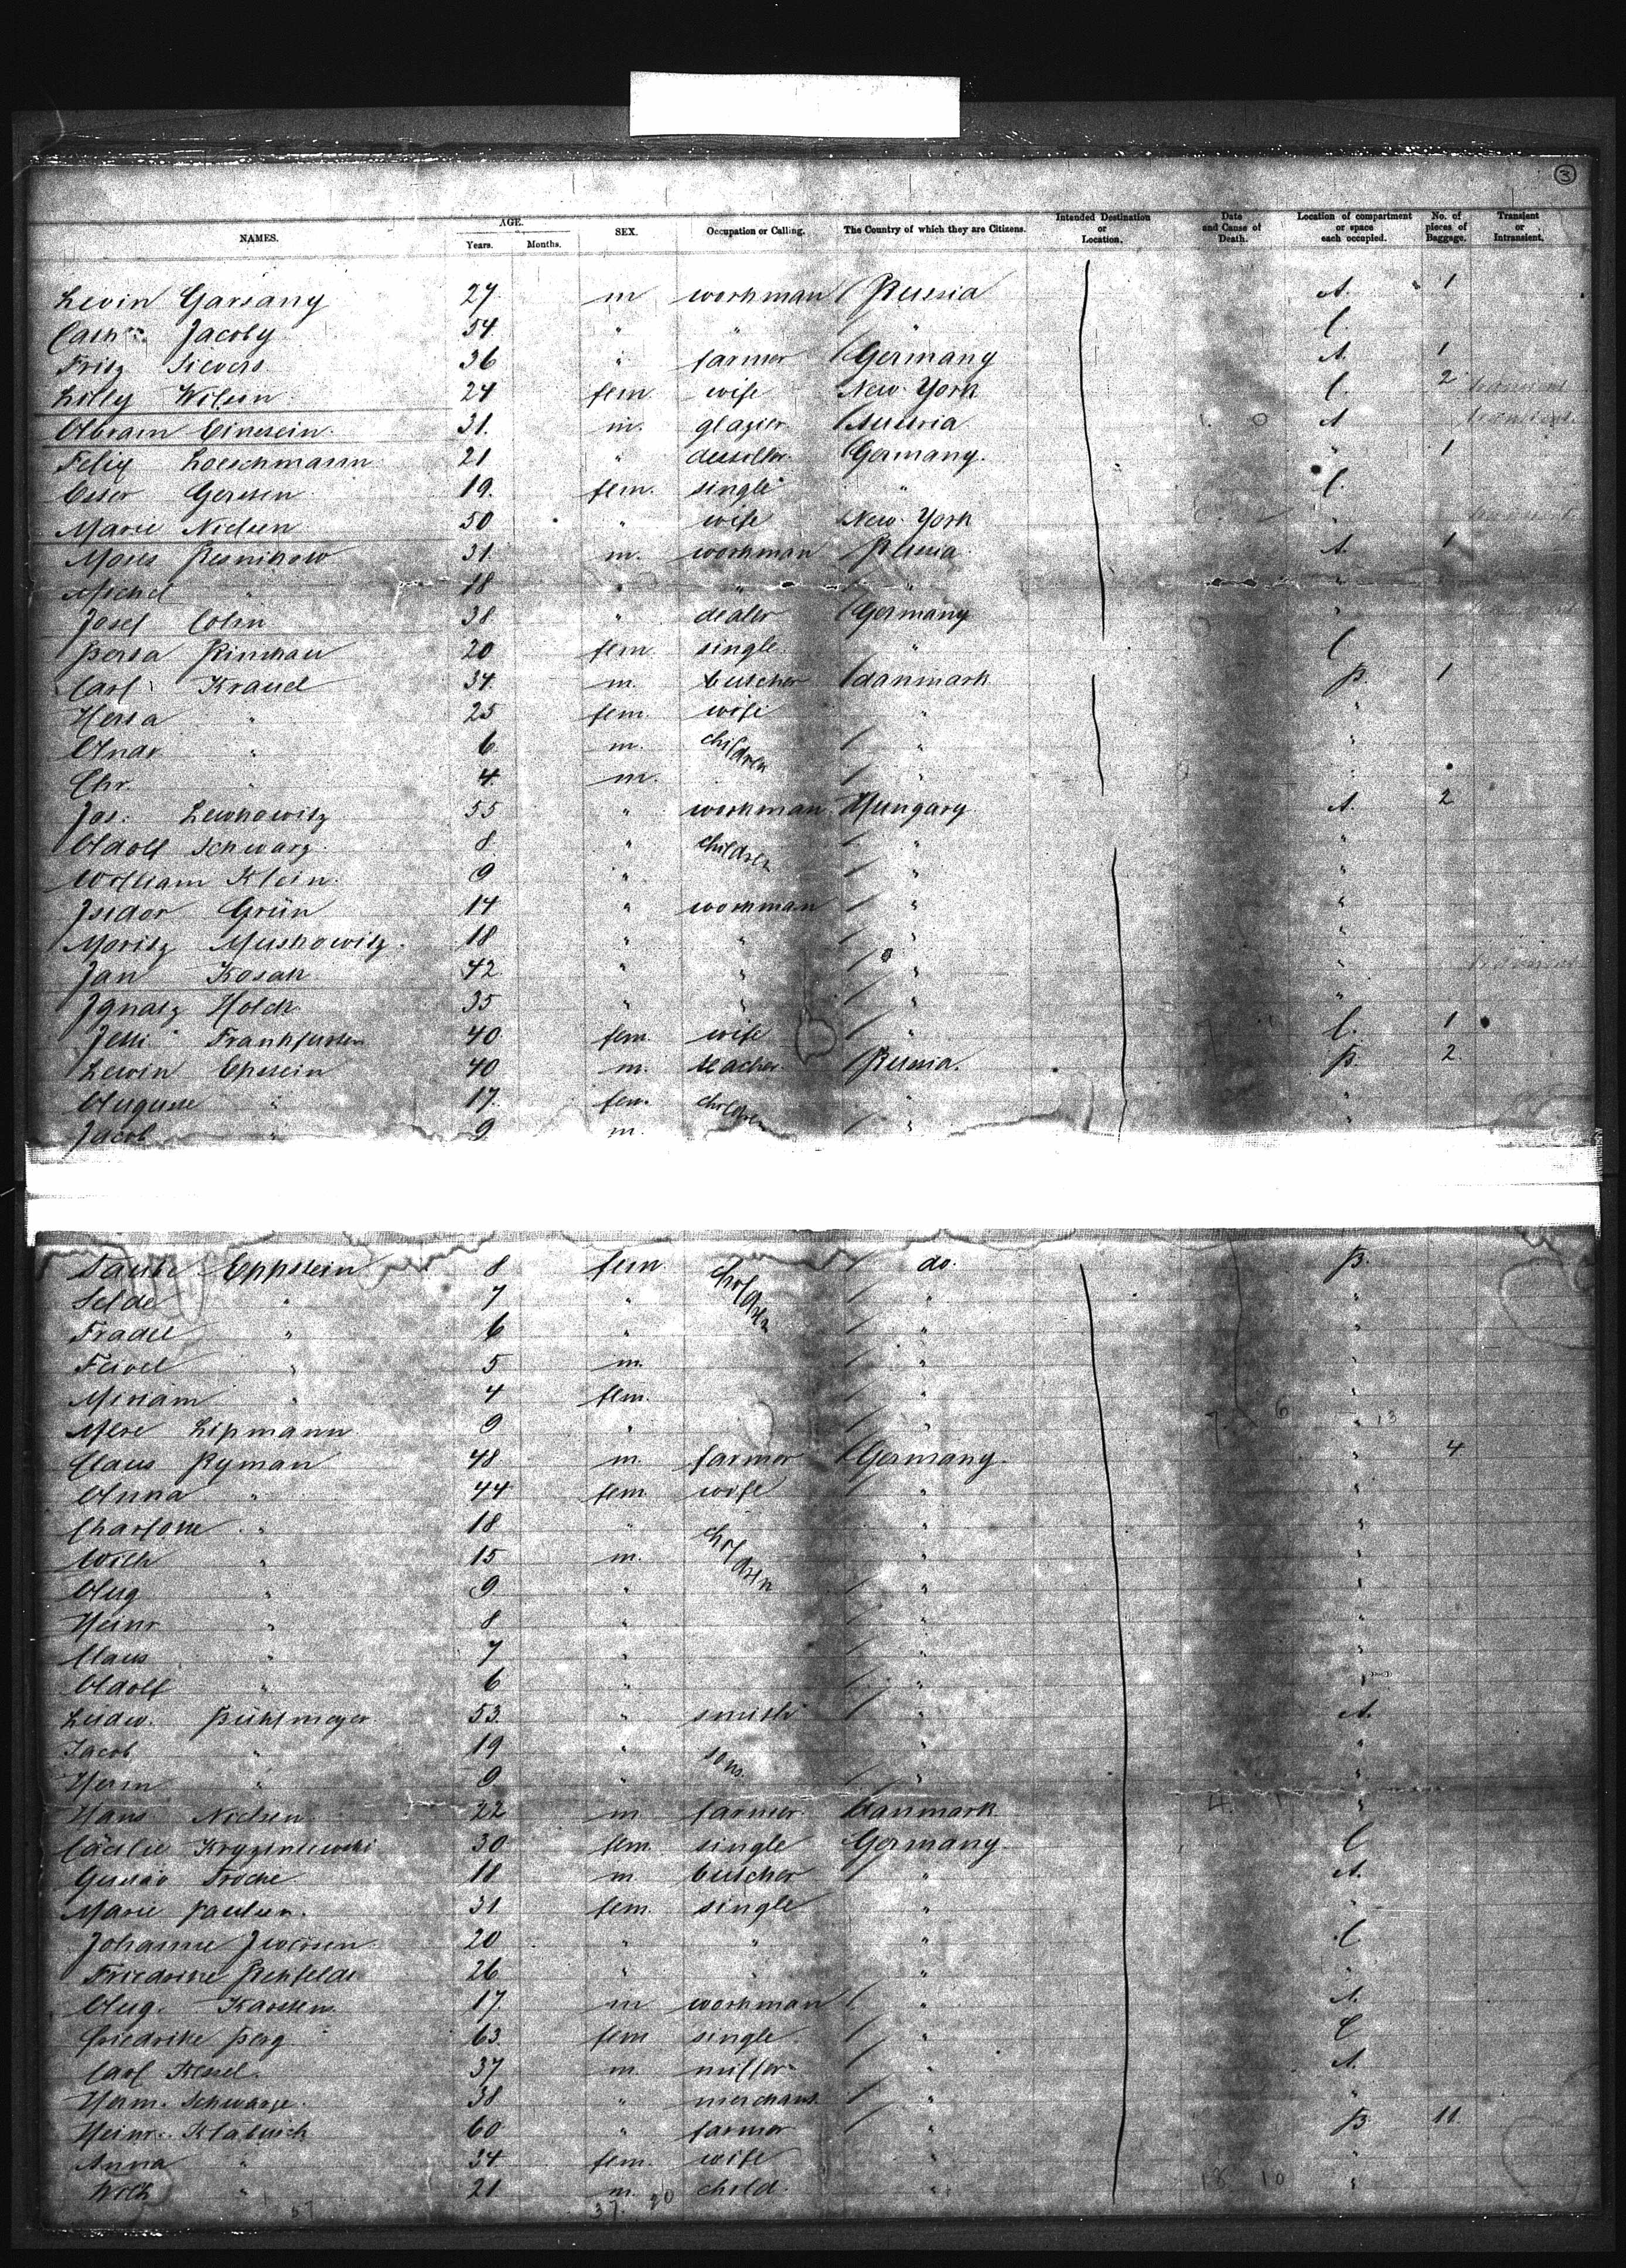 3
NAMES. AGE. Years. Months. SEX. Occupation or Calling. The Country of which they are Citizens. Intended Destination or Location. Date and Cause of Death. Location of compartment or space each occupied. No. of pieces of Baggage. Transient or Intransient.
Levin Garsany 27 m workman Russia A. 1
Jacoby 54 " " " C.
Fritz Sievers 36 " farmer Germany A. 1
Lilly Wilson 24 fem. wife New-York C. 2 transient
Abram Einstein 31. m. glazier Austria A transient
Felix Loeschmann 21 " Germany. " 1
Ester Gersten 19. fem. single " C.
Marie Nielsen 50 " wife New-York "
Moses Resnikow 31. m. workman Russia A. 1
Michel " 18 " " " "
Josef Cohn 38 " dealer Germany "
Berta 20 fem. single " C
Carl Kraud 34. m. butcher danmark B. 1
Herta " 25 fem. wife " "
Andr " 6 m. children " "
Chr. " 4. m. " "
Jos. Lewkowitz 55 " workman Hungary A. 2
Adolf Schwarz 8 " children " "
William Klein 9 " " "
Isidor Grün 14 " workman " "
Moritz Muskowitz 18 " " " "
Jan Kosak 42 " " " "
Ignatz Holck 35 " " " "
Frankfurter 40 fem. wife " C. 1
Lewin Epstein 40 m. teacher Russia. B. 2.
Auguste " 17. fem. children " "
Jacob " 9 m. " "
Taube Eppstein 8 fem children do. B.
Selde " 7 " " "
Fradel " 6 " " "
Feivel " 5 m. " "
Miriam " 4 fem. " "
Mere Lipmann 9 " " "
Claus Ryman 48 m. farmer Germany. " 4
Anna " 44 fem wife " "
Charlotte " 18 " children " "
Wilh " 15 m. " "
Aug " 9 " " "
Heinr " 8 " " "
Claus " 7 " " "
Adolf " 6 " " "
Ludw. Bühlmeyer 53. " smith " A.
Jacob " 19 " sons. " "
Herm " 9 " " "
Hans Nielsen 22 m farmer danmark "
Cäcilie Kryzsniewski 30 fem. single Germany C
Gustav Troche 18 m. butcher " A.
Marie Paulsen. 31 fem. single " "
Johanne 20 " " " C
Friedrike Rehfeldt 26 " " " "
Aug. Karsten 17. m workman " A.
Friedrike Berg 63. fem single " C
Carl Kessel. 37 m. miller " A.
Herm. Schwarze. 38 " merchant " "
Heinr. Klabusch 60 " farmer " B. 11.
Anna " 34 fem. wife " "
Wilh " 21 m. child. " "
57 37. 20 18 10